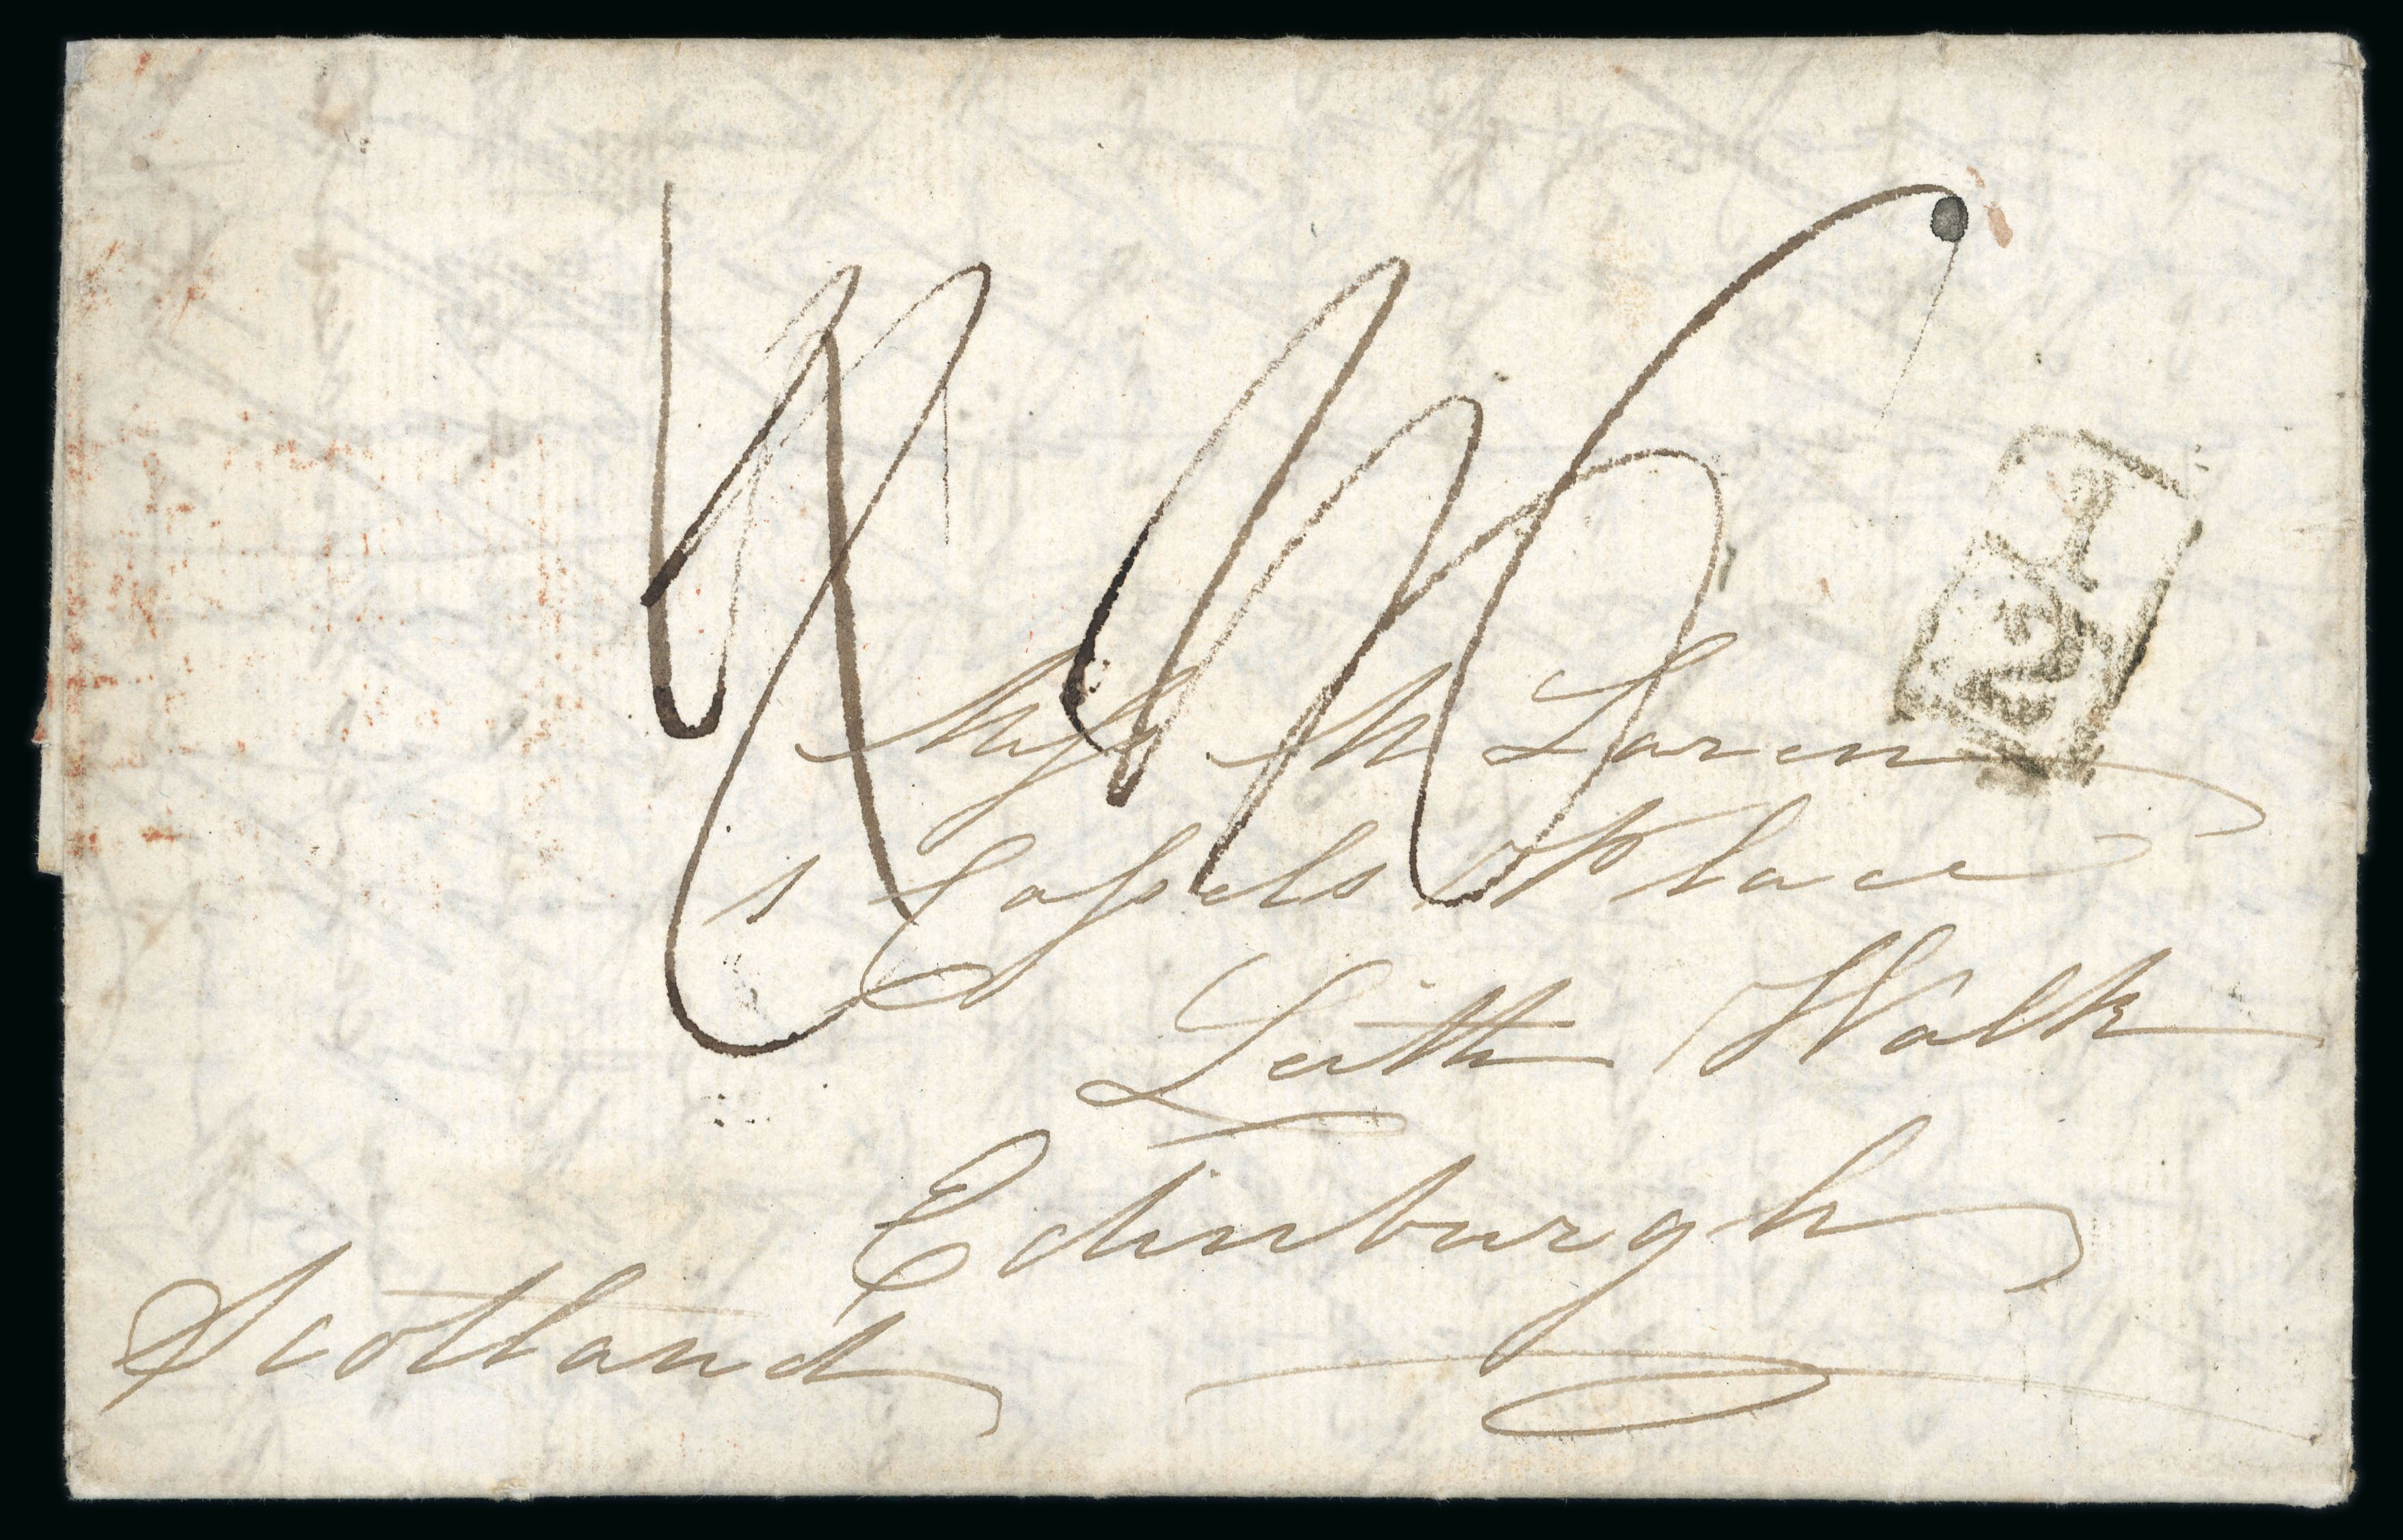 Miss McLaren
1 Cassels Place
Leith Walk
Edinburgh
Scotland